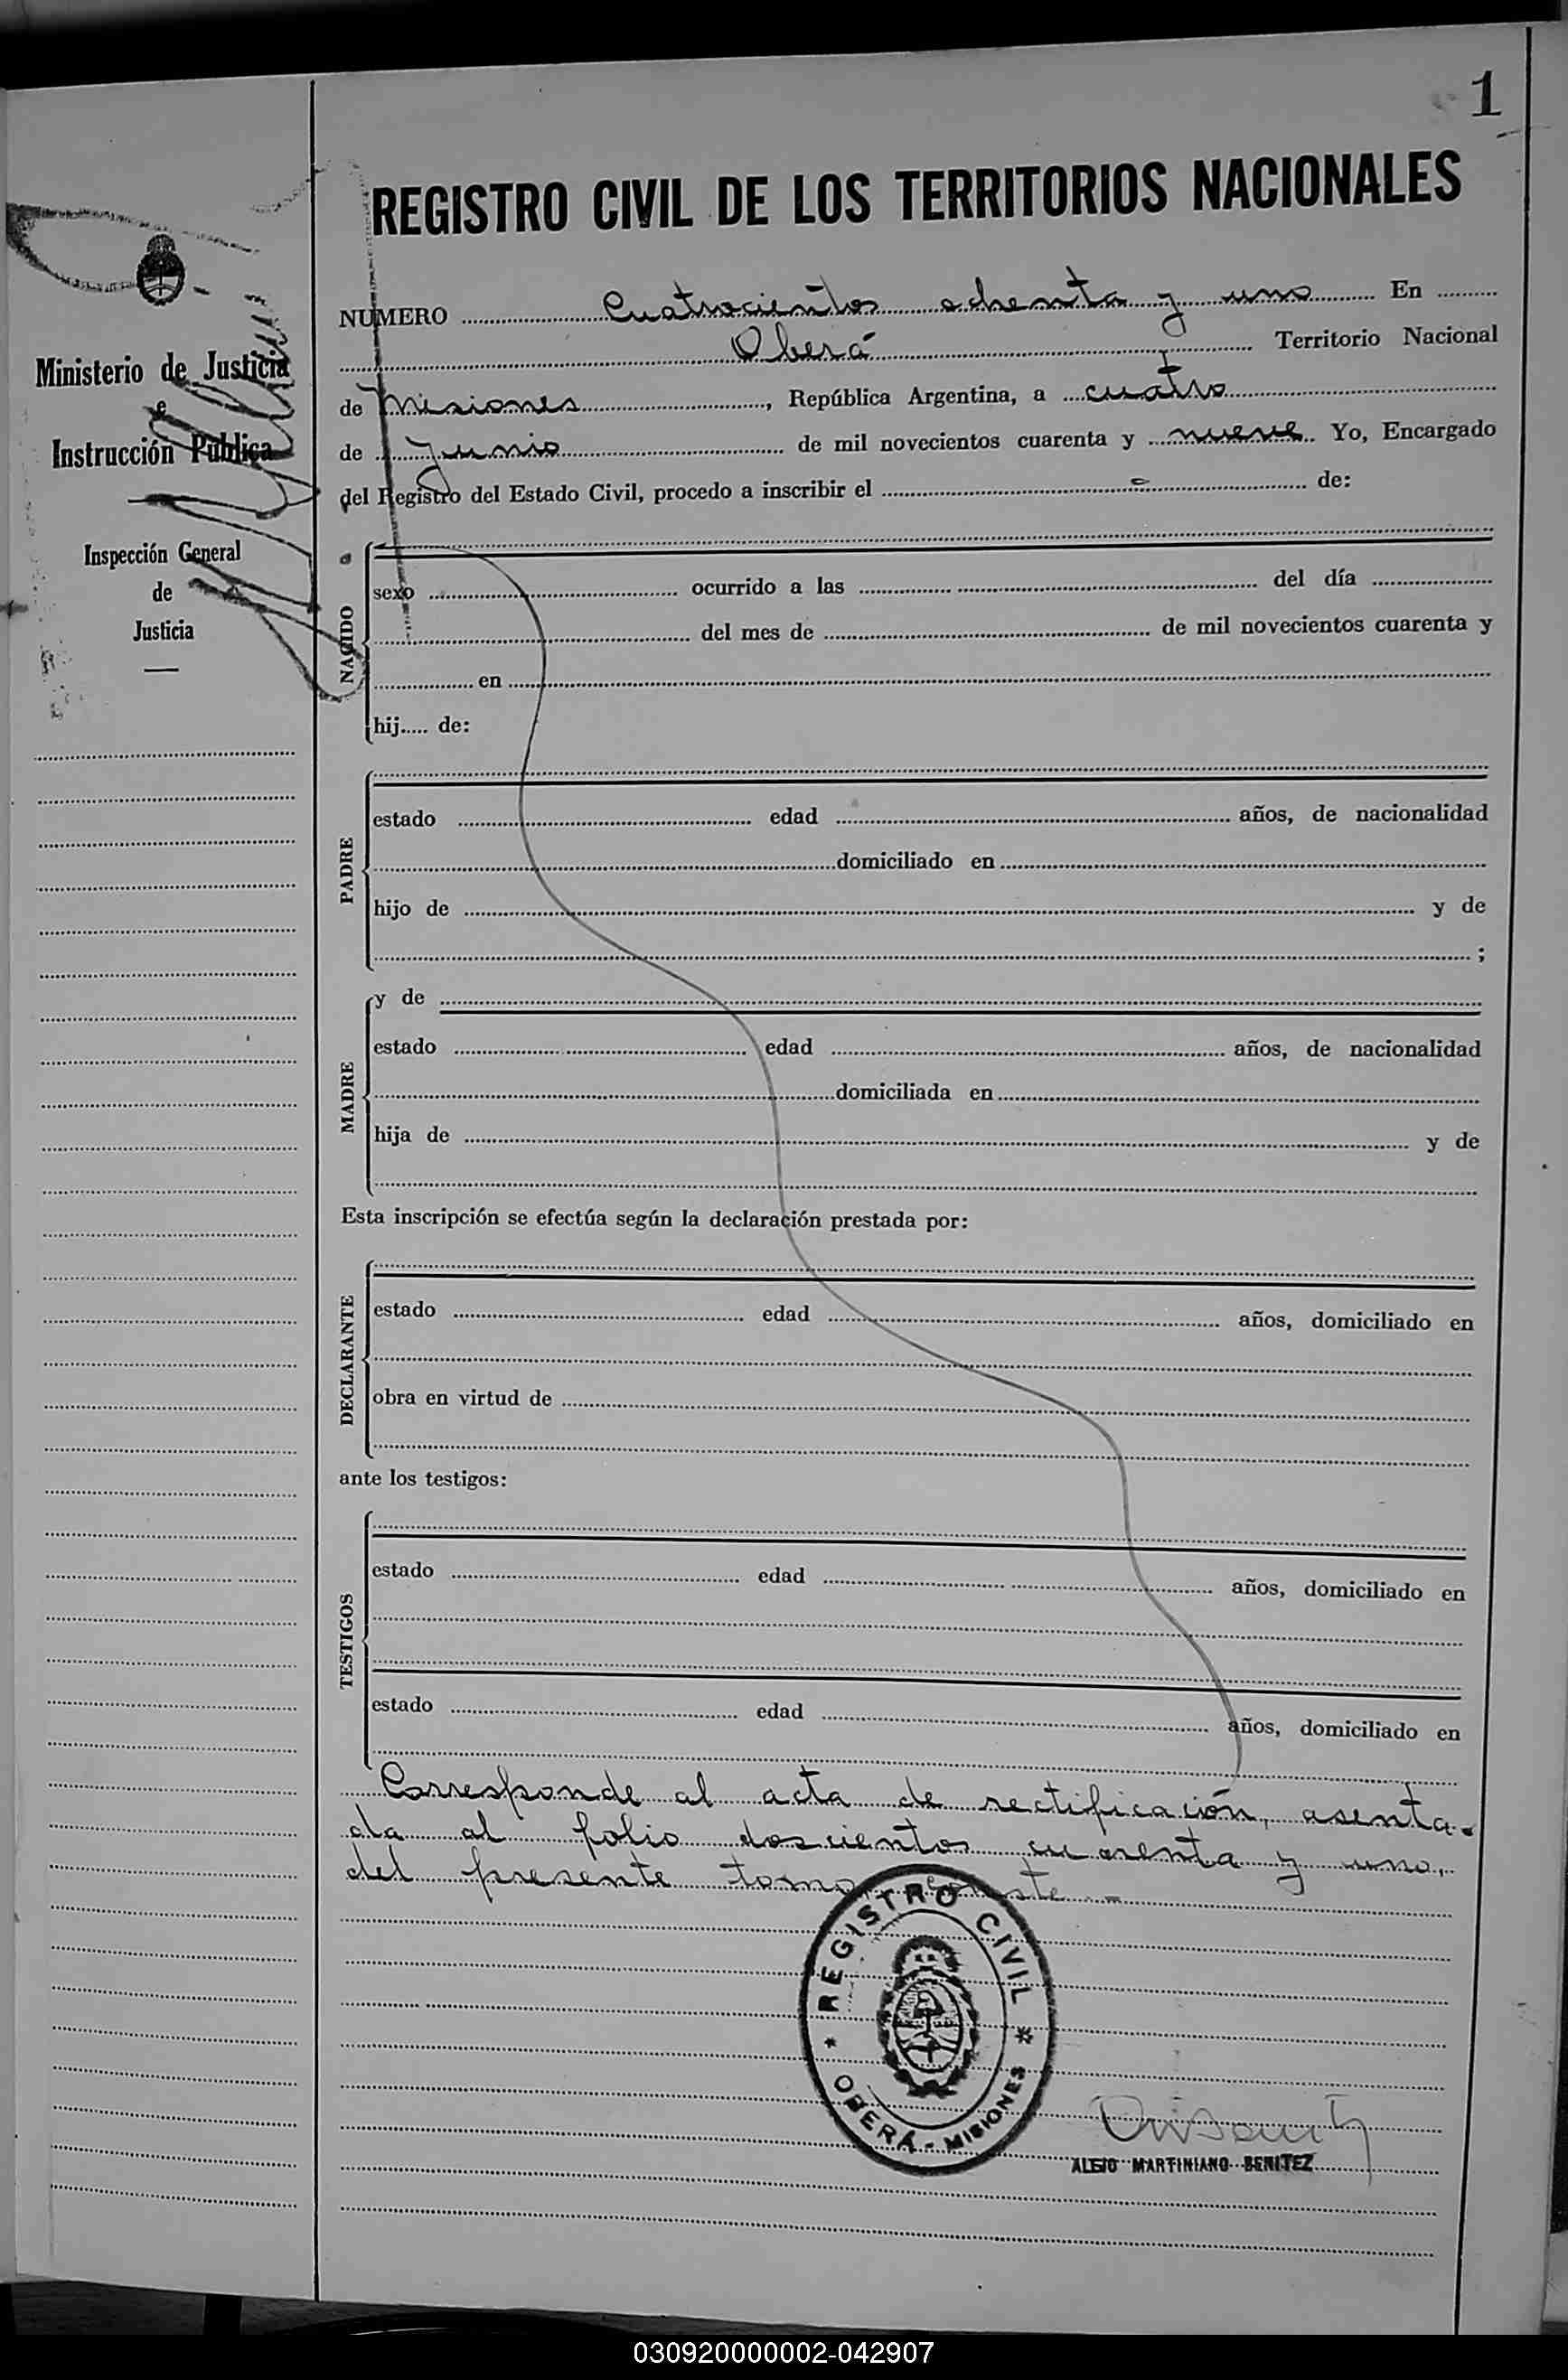 1
REGISTRO CIVIL DE LOS TERRITORIOS NACIONALES
Ministerio de Justicia
e
Instrucción Pública
Inspección General
de
Justicia
NUMERO Cuatrocientos ochenta y uno En
Oberá Territorio Nacional
de Misiones, República Argentina, a cuatro
de Junio de mil novecientos cuarenta y nueve. Yo, Encargado
del Registro del Estado Civil, procedo a inscribir el de:
NACIDO
sexo ocurrido a las del día
del mes de de mil novecientos cuarenta y
en
hij..... de:
PADRE
estado edad años, de nacionalidad
domiciliado en
hijo de y de
;
MADRE
y de
estado edad años, de nacionalidad
domiciliada en
hija de y de
Esta inscripción se efectúa según la declaración prestada por:
DECLARANTE
estado edad años, domiciliado en
obra en virtud de
ante los testigos:
TESTIGOS
estado edad años, domiciliado en
estado edad años, domiciliado en
Corresponde al acta de rectificación, asenta-
da al folio doscientos cuarenta y uno,
del presente tomo. Conste -
REGISTRO CIVIL
OBERÁ - MISIONES
ALEJO MARTINIANO BENITEZ
030920000002-042907